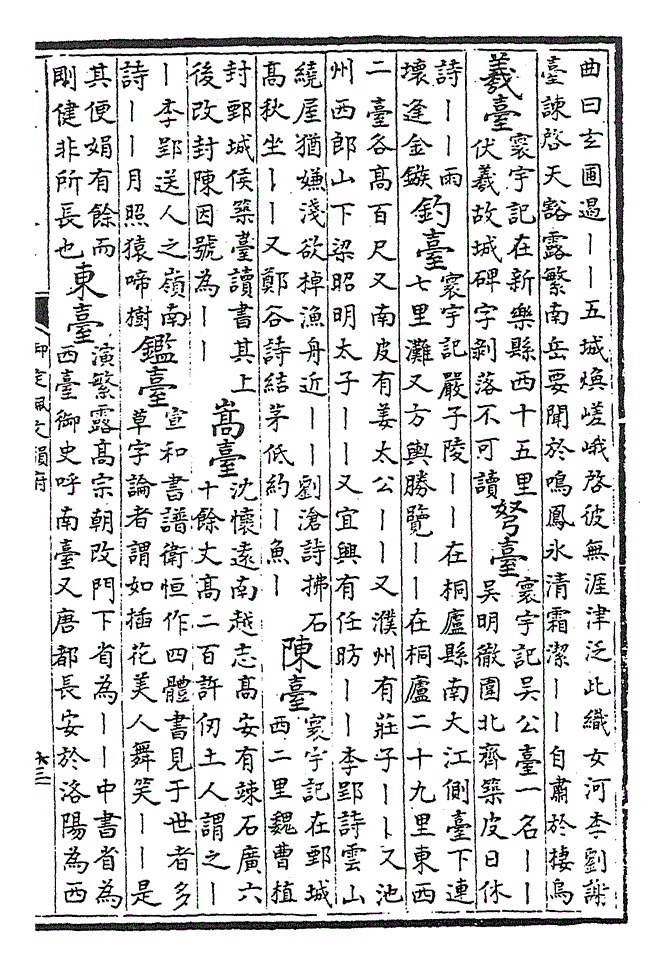 曲曰玄圃過丨丨五城煥嵯峨啓彼無涯津泛此織女河李劉謝
臺諫啓天豁露繁南岳要聞於鳴鳳氷清霜潔丨丨自肅於棲烏
羲臺
寰宇記在新樂縣西十五里
伏羲故城碑字剝落不可讀
弩臺
寰宇記吳公臺一名丨丨
吳明徹圍北齊築皮日休
詩丨丨雨
壞逢金鏃
釣臺
寰宇記嚴子陵丨丨在桐廬縣南大江側臺下連
七里灘又方輿勝覽丨丨在桐廬二十九里東西
二臺各高百尺又南皮有姜太公丨丨又濮州有莊子丨丨又池
州西郎山下梁昭明太子丨丨又宜興有任昉丨丨李郢詩雲山
繞屋猶嫌淺欲棹漁舟近丨丨劉滄詩拂石
高秋坐丨丨又鄭谷詩結茅低約丨魚丨
陳臺
寰宇記在鄄城
西二里魏曹植
封鄄城侯築臺讀書其上
後改封陳因號為丨丨
嵩臺
沈懷遠南越志高安有竦石廣六
十餘丈高二百許仞土人謂之丨
丨李郢送人之嶺南
詩丨丨月照猿啼樹
鑑臺
宣和書譜衛恒作四體書見于世者多
草字論者謂如插花美人舞笑丨丨是
其便娟有餘而
剛健非所長也
東臺
演繁露高宗朝改門下省為丨丨中書省為
西臺御史呼南臺又唐都長安於洛陽為西
御定佩文韻府